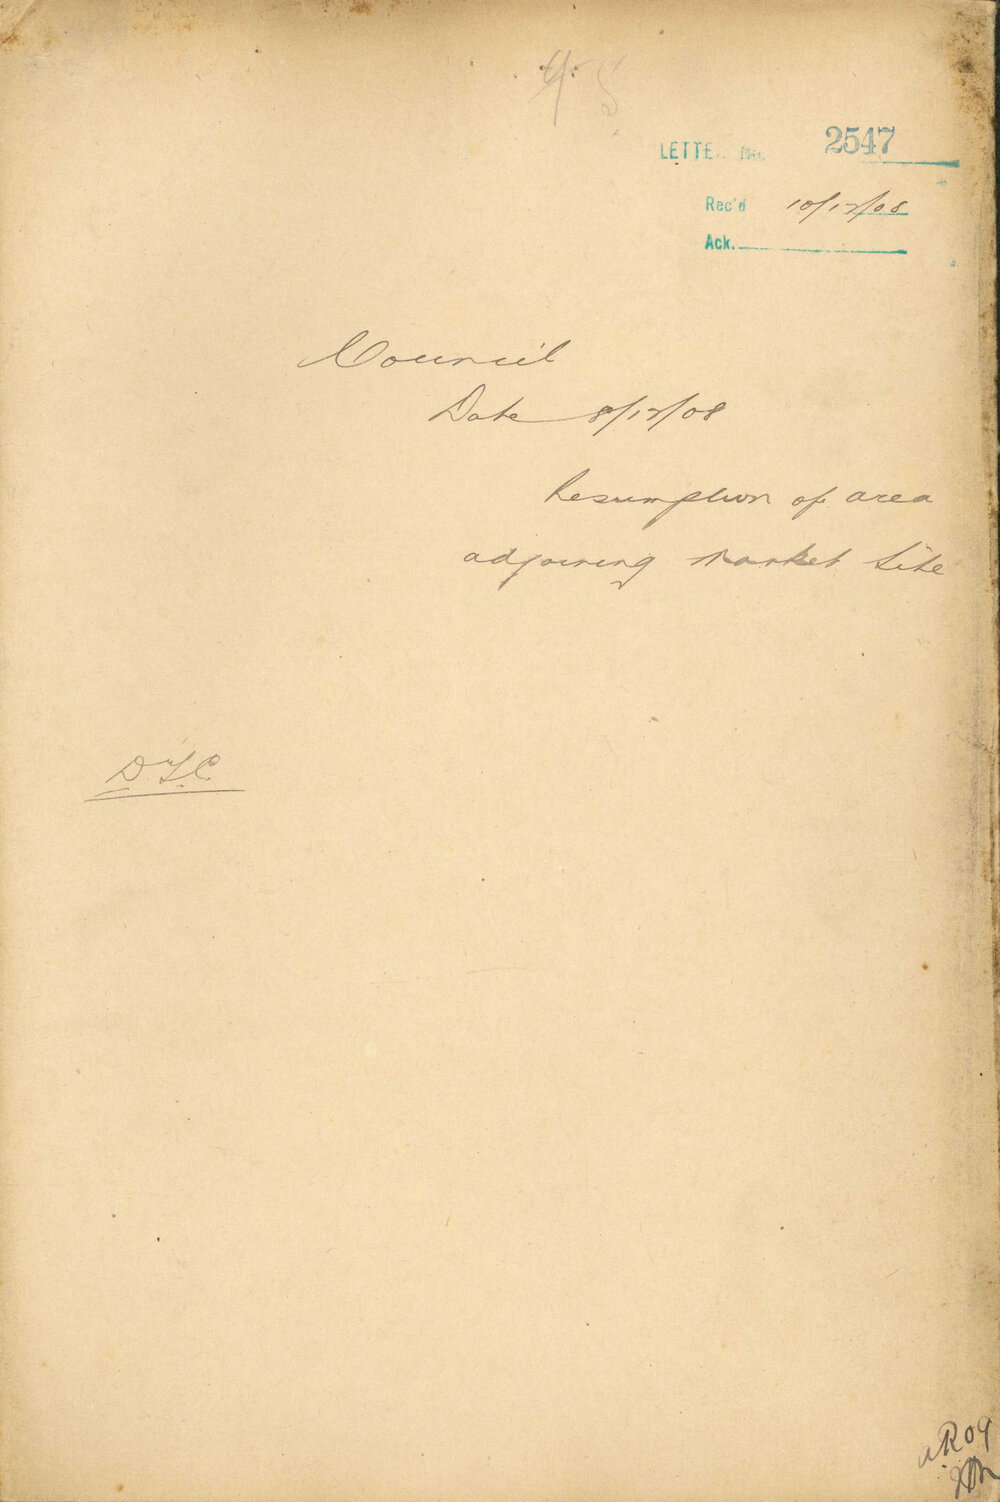 45
LETTER No. 2547
Rec'd 10/12/08
Ack.
Council
Date 8/12/08
Resumption of area
adjoining Market Site
D.T.C.
R09